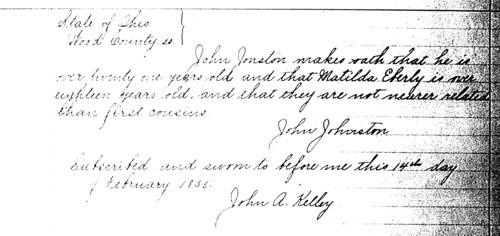 State of Ohio
Wood County ss.
John Jonston makes oath that he is
over twenty one years old and that Matilda Eberly is over
eighteen years old, and that they are not nearer related
than first cousins
John Johnston
Subscribed and sworn to before me this 14th day
of February 1855.
John A. Kelley